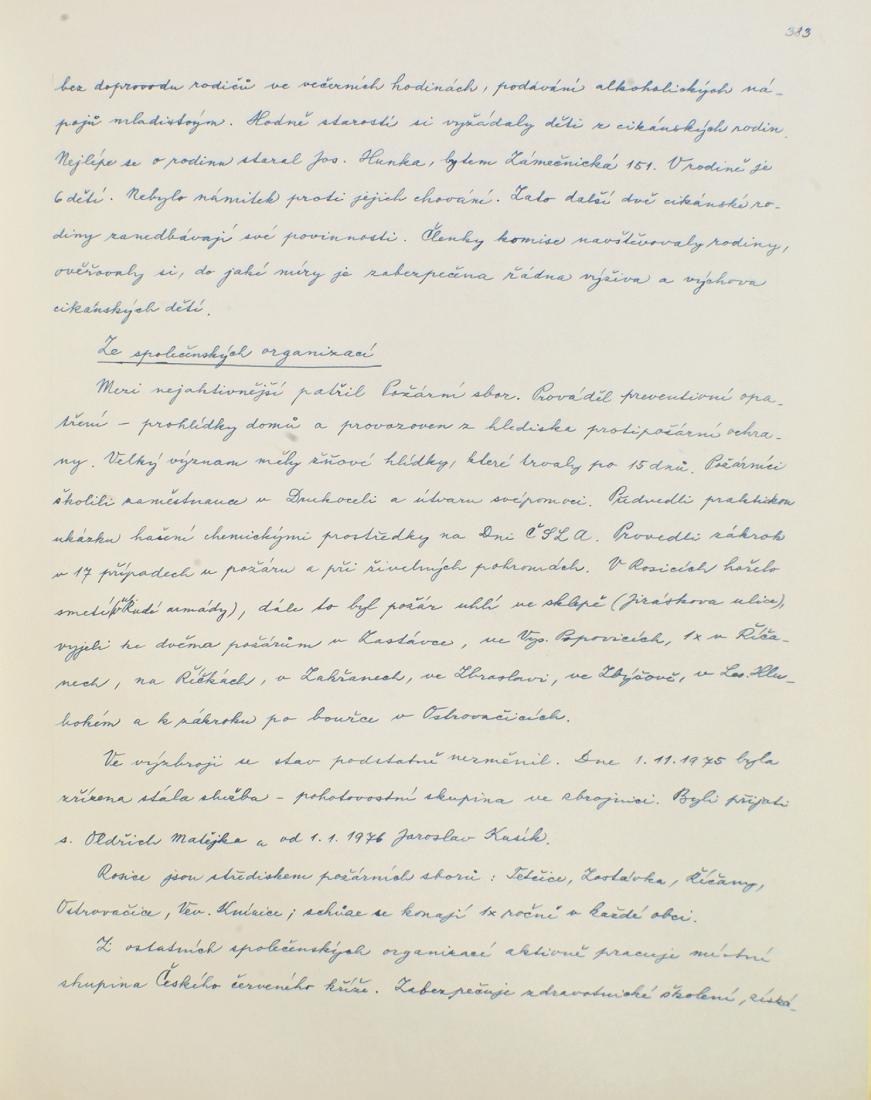 383
bez doprovodu rodičů ve večerních hodinách, podávání alkoholických ná-
pojů mladistvým. Hodně starostí si vyžádaly děti z cikánských rodin.
Nejlépe se o rodinu staral Jos. Hunka, bytem Zámečnická 151. V rodině je
6 dětí. Nebylo námitek proti jejich chování. Zato další dvě cikánské ro-
diny zanedbávají své povinnosti. Členky komise navštěvovaly rodiny,
ověřovaly si, do jaké míry je zabezpečena řádna výživa a výchova
cikánských dětí.
Ze společenských organizací
Mezi nejaktivnější patřil Požární sbor. Prováděl preventivní opa-
tření - prohlídky domů a provozoven z hlediska protipožární ochra-
ny. Velký význam měly žňové hlídky, které trvaly po 15 dnů. Požárníci
školili zaměstnance v Drukoceli a útvaru svépomoci. Předvedli praktickou
ukázku hašení chemickými prostředky na Dni ČSLA. Provedli zákrok
v 17 případech u požáru a při živelných pohromách. V Rosicích hořelo
smetí (ul. Rudé armády), dále to byl požár uhlí ve sklepě (Jiráskova ulice),
vyjeli ke dvěma požárům v Zastávce, ve Vys. Popovicích, 1x v Říča-
nech, na Říčkách, v Zakřanech, ve Zbraslavi, ve Zbýšově, v Les. Hlu-
bokém a k zákroku po bouřce v Ostrovačicích.
Ve výzbroji se stav podstatně nezměnil. Dne 1.11.1975 byla
zřízena stálá služba - pohotovostní skupina ve zbrojnici. Byli přijati
s. Oldřich Matějka a od 1.1.1976 Jaroslav Kusík.
Rosice jsou střediskem požárních sborů: Tetčice, Zastávka, Říčany,
Ostrovačice, Vev. Knínice; schůze se konají 1x ročně v každé obci.
Z ostatních společenských organizací aktivně pracuje místní
skupina Českého červeného kříže. Zabezpečuje zdravotnické školení, získá-